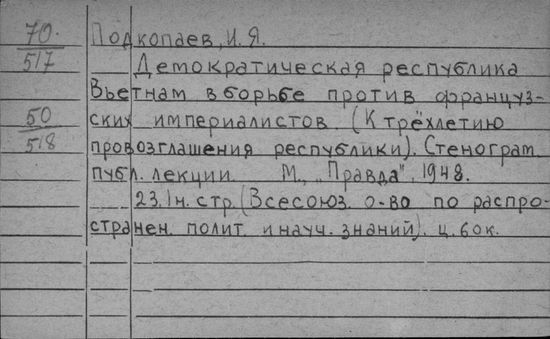 70.
517
Подкопаев, И. Я.
Демократическая республика
Вьетнам в борьбе против француз-
50
518
ских империалистов. (К трёхлетию
провозглашения республики). Стенограм.
публ. лекции. М., „Правда", 1948.
23, 1 н. стр. (Всесоюз. о-во по распро-
странен. полит. и науч. знаний). ц. 60к.